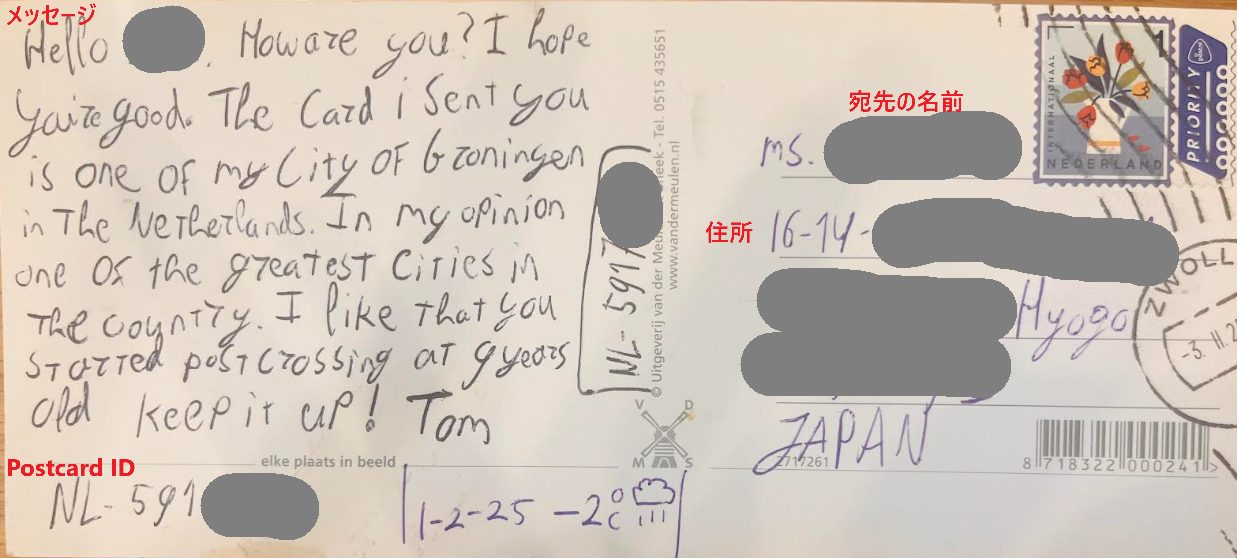 メッセージ
Hello . How are you? I hope
you're good. The Card i sent you
is one of my City of Groningen
in The Netherlands. In my opinion
one of the greatest Cities in
The country. I like that you
started postcrossing at 9 years
old keep it up! Tom
Postcard ID
NL-591
elke plaats in beeld
1-2-25 -2°C
NL-5917
© Uitgeverij van der Meu heek - Tel. 0515 435651
www.vandermeulen.nl
V D
M S
宛先の名前
ms.
住所
16-14-
Hyogo
JAPAN
2717261
8 718322 000241 >
INTERNATIONAAL
1
NEDERLAND
PRIORITY
ZWOLL
-3. II. 2